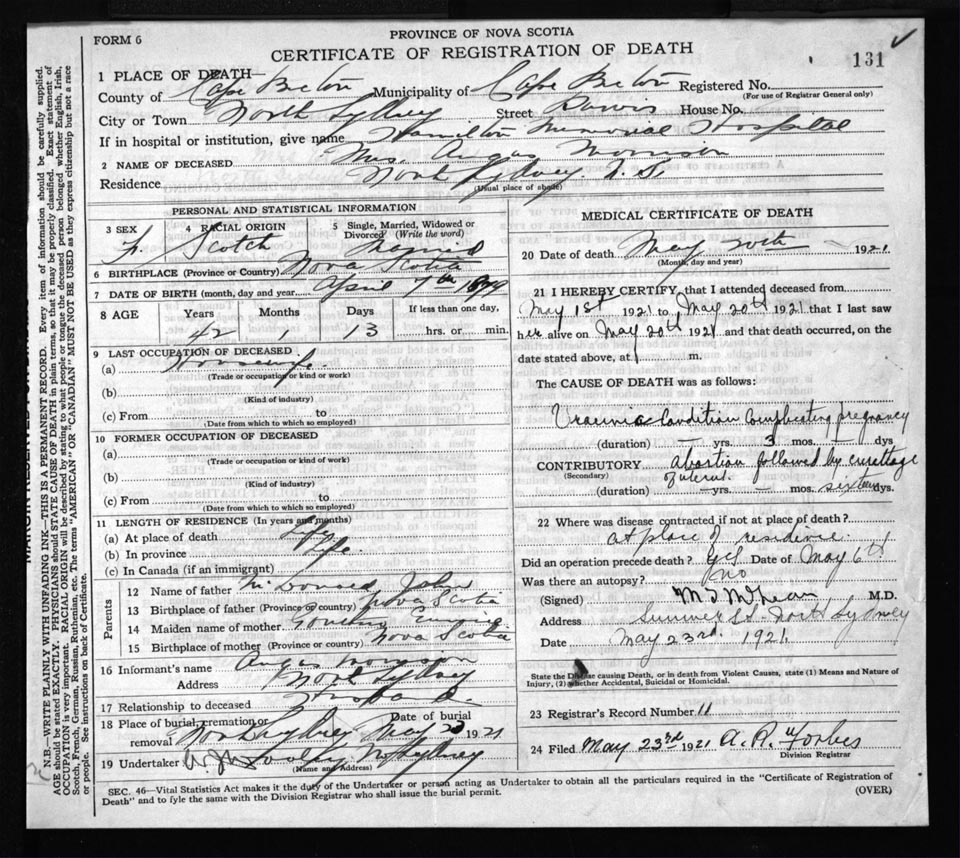 FORM 6
PROVINCE OF NOVA SCOTIA
CERTIFICATE OF REGISTRATION OF DEATH
131
1 PLACE OF DEATH—
County of Cape Breton Municipality of Cape Breton Registered No.
(For use of Registrar General only)
City or Town North Sydney Street House No.
If in hospital or institution, give name Hamilton Memorial Hospital
2 NAME OF DECEASED Mrs. Angus Morrison
Residence North Sydney N. S.
(Usual place of abode)
PERSONAL AND STATISTICAL INFORMATION
3 SEX 4 RACIAL ORIGIN 5 Single, Married, Widowed or Divorced (Write the word)
F. Scotch Married
6 BIRTHPLACE (Province or Country) Nova Scotia
7 DATE OF BIRTH (month, day and year) April 7th 1879
8 AGE Years Months Days If less than one day,
42 1 13 hrs. or min.
9 LAST OCCUPATION OF DECEASED
(a) Housewife
(Trade or occupation or kind or work)
(b)
(Kind of industry)
(c) From to
(Date from which to which so employed)
10 FORMER OCCUPATION OF DECEASED
(a)
(Trade or occupation or kind of work)
(b)
(Kind of industry)
(c) From to
(Date from which to which so employed)
11 LENGTH OF RESIDENCE (In years and months)
(a) At place of death Life
(b) In province Life
(c) In Canada (if an immigrant)
Parents
12 Name of father McDonald John
13 Birthplace of father (Province or country) Nova Scotia
14 Maiden name of mother
15 Birthplace of mother (Province or country) Nova Scotia
16 Informant's name Angus Morrison
Address North Sydney
17 Relationship to deceased Husband
18 Place of burial, cremation or removal North Sydney Date of burial May 23 1921
19 Undertaker N Sydney
(Name and Address)
MEDICAL CERTIFICATE OF DEATH
20 Date of death May 20th 1921
(Month, day and year)
21 I HEREBY CERTIFY, that I attended deceased from
May 1st 1921 to May 20th 1921 that I last saw
her alive on May 20th 1921 and that death occurred, on the
date stated above, at m.
The CAUSE OF DEATH was as follows:
Uraemia Condition Complicating pregnancy
(duration) — yrs. 3 mos. — dys
CONTRIBUTORY Abortion followed by curettage
(Secondary) of uterus.
(duration) — yrs. — mos. sixteen dys.
22 Where was disease contracted if not at place of death?
at place of residence.
Did an operation precede death? yes Date of May 6th
Was there an autopsy? no
(Signed) M.D.
Address Summer St. North Sydney
Date May 23rd. 1921.
State the Disease causing Death, or in death from Violent Causes, state (1) Means and Nature of
Injury, (2) whether Accidental, Suicidal or Homicidal.
23 Registrar's Record Number 11
24 Filed May 23rd 1921 Forbes
Division Registrar
SEC. 46—Vital Statistics Act makes it the duty of the Undertaker or person acting as Undertaker to obtain all the particulars required in the "Certificate of Registration of
Death" and to fyle the same with the Division Registrar who shall issue the burial permit. (OVER)
N.B.—WRITE PLAINLY WITH UNFADING INK—THIS IS A PERMANENT RECORD. Every item of information should be carefully supplied.
AGE should be stated EXACTLY. PHYSICIANS should STATE CAUSE OF DEATH in plain terms, so that it may be properly classified. Exact statement of
OCCUPATION is very important. RACIAL ORIGIN will be described by stating to what people or tongue the deceased person belonged whether English, Irish,
Scotch, French, German, Russian, Ruthenian, etc. The terms "AMERICAN" OR "CANADIAN" MUST NOT BE USED as they express citizenship but not a race
or people. See instructions on back of Certificate.